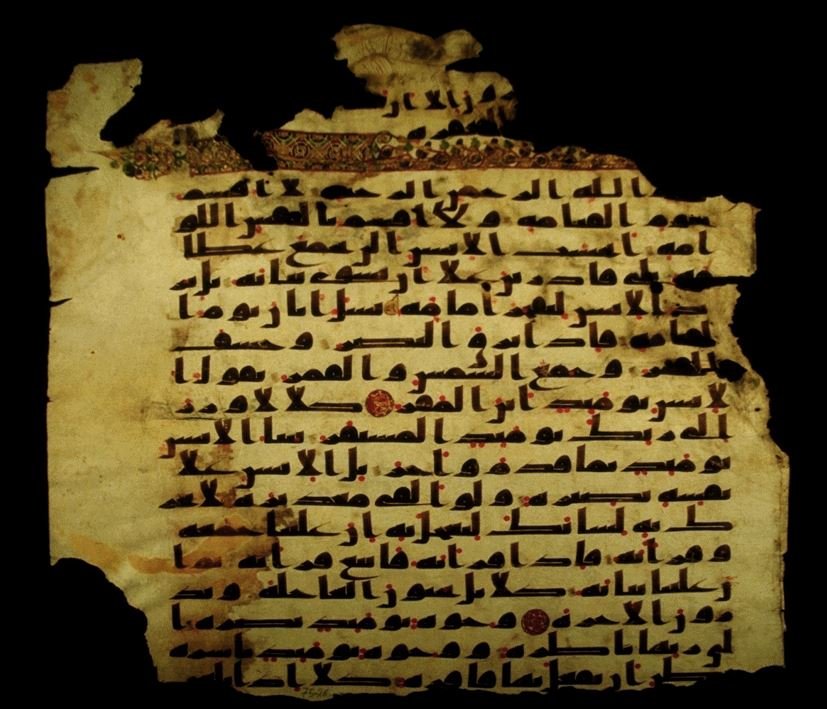 الله الرحمن الرحيم لا اقسم
بيوم القيامة ولا اقسم بالنفس اللو
امة ايحسب الانسن الن نجمع عظا
مه بلى قادرين على ان نسوي بنانه بل ير
يد الانسن ليفجر امامه يسل ايان يوم ا
لقيامة فاذا برق البصر وخسف
القمر وجمع الشمس والقمر يقول ا
لانسن يومئذ اين المفر كلا لا وزر
الى ربك يومئذ المستقر ينبا الانسن
يومئذ بما قدم واخر بل الانسن على
نفسه بصيرة ولو القى معذيره لا تحر
ك به لسانك لتعجل به ان علينا جمعه
وقرانه فاذا قرانه فاتبع قرانه ثم ا
ن علينا بيانه كلا بل تحبون العاجلة وتذ
رون الاخرة وجوه يومئذ ناضرة ا
لى ربها ناظرة ووجوه يومئذ باسرة
تظن ان يفعل بها فاقرة كلا اذا
75-26